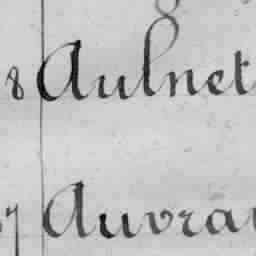 8 Aulnet
7 Auvra